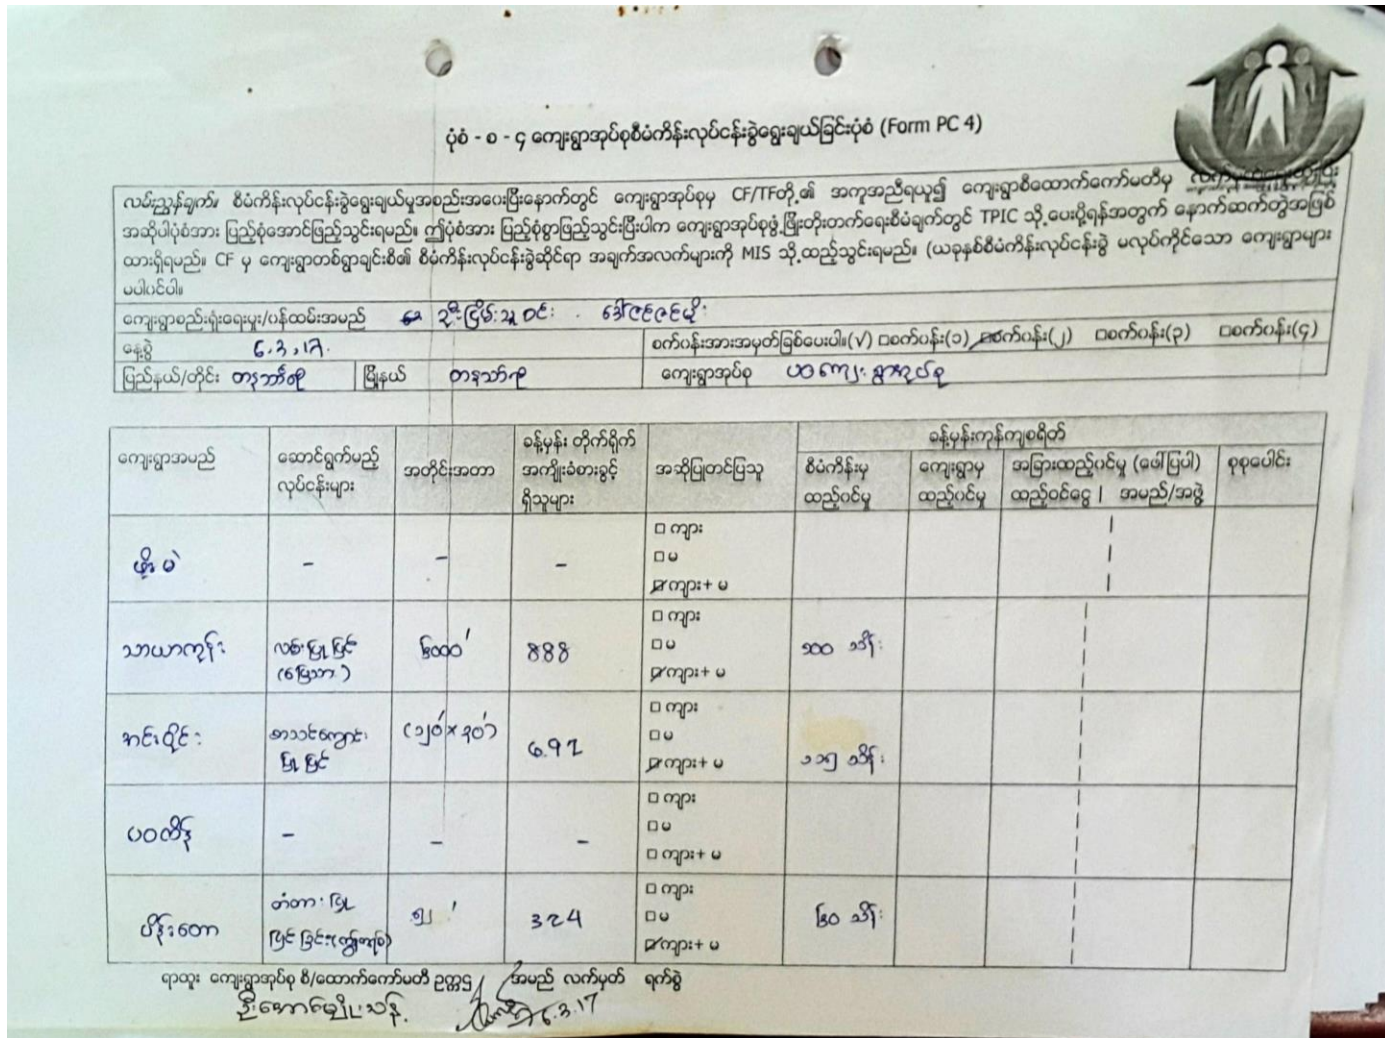 ပုံစံ - စ - ၄ ကျေးရွာအုပ်စုစီမံကိန်းလုပ်ငန်းခွဲရွေးချယ်ခြင်းပုံစံ (Form PC 4)
လမ်းညွှန်ချက်။ စီမံကိန်းလုပ်ငန်းခွဲရွေးချယ်မှုအစည်းအဝေးပြီးနောက်တွင် ကျေးရွာအုပ်စုမှ CF/TFတို့၏ အကူအညီရယူ၍ ကျေးရွာစီထောက်ကော်မတီမှ
အဆိုပါပုံစံအား ပြည့်စုံအောင်ဖြည့်သွင်းရမည်။ ဤပုံစံအား ပြည့်စုံစွာဖြည့်သွင်းပြီးပါက ကျေးရွာအုပ်စုဖွံ့ဖြိုးတိုးတက်ရေးစီမံချက်တွင် TPIC သို့ပေးပို့ရန်အတွက် နောက်ဆက်တွဲအဖြစ်
ထားရှိရမည်။ CF မှ ကျေးရွာတစ်ရွာချင်းစီ၏ စီမံကိန်းလုပ်ငန်းခွဲဆိုင်ရာ အချက်အလက်များကို MIS သို့ထည့်သွင်းရမည်။ (ယခုနှစ်စီမံကိန်းလုပ်ငန်းခွဲ မလုပ်ကိုင်သော ကျေးရွာများ
မပါဝင်ပါ။
ကျေးရွာစည်းရုံးရေးမှူး/ဝန်ထမ်းအမည် ဦးငြိမ်းသူဝင်း . ဒေါ်ဇင်ဇင်မိုး
နေ့စွဲ 6.3.17. စက်ဝန်းအားအမှတ်ခြစ်ပေးပါ။(√) □စက်ဝန်း(၁) ☑စက်ဝန်း(၂) □စက်ဝန်း(၃) □စက်ဝန်း(၄)
ပြည်နယ်/တိုင်း တနင်္သာရီ မြို့နယ် တနင်္သာရီ ကျေးရွာအုပ်စု ပဝကျေးရွာအုပ်စု
ခန့်မှန်းကုန်ကျစရိတ်
ကျေးရွာအမည် ဆောင်ရွက်မည့် လုပ်ငန်းများ အတိုင်းအတာ ခန့်မှန်း တိုက်ရိုက် အကျိုးခံစားခွင့် ရှိသူများ အဆိုပြုတင်ပြသူ စီမံကိန်းမှ ထည့်ဝင်မှု ကျေးရွာမှ ထည့်ဝင်မှု အခြားထည့်ဝင်မှု (ဖော်ပြပါ) ထည့်ဝင်ငွေ | အမည်/အဖွဲ့ စုစုပေါင်း
□ ကျား
□ မ
- - - ☑ကျား+ မ
□ ကျား
သာယာကုန်း လမ်းပြုပြင် ၆၀၀၀' 888 □ မ ၁၀၀ သိန်း
(မြေသား) ☑ကျား+ မ
□ ကျား
စာသင်ကျောင်း (၁၂၀'×၃၀') 697 □ မ ၁၁၅ သိန်း
ပြုပြင် ☑ကျား+ မ
□ ကျား
- - - □ မ
□ ကျား+ မ
တံတားပြု □ ကျား
ပိန်းတော ၅၂' 324 □ မ ၆၀ သိန်း
ပြင်ခြင်း ☑ကျား+ မ
ရာထူး ကျေးရွာအုပ်စု စီ/ထောက်ကော်မတီ ဥက္ကဌ အမည် လက်မှတ် ရက်စွဲ
ဦးအောင်မျိုးသန့် 6.3.17